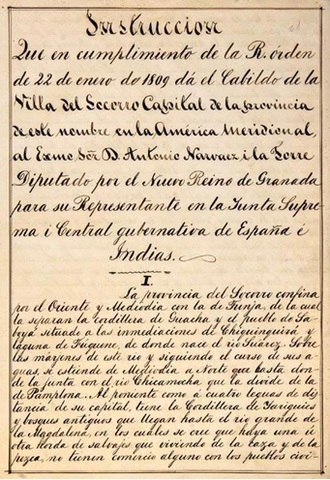 Instruccion
Que en cumplimiento de la R. órden
de 22 enero do 1809 dá el Cabildo de la
Villa del Socorro Capital de la provincia
de este nombre en la América Meridional,
al Exmo Sõr D. Antonio Narvaez i la Torre
Diputado por el Nuevo Reino de Granada
para su Representante en la Junta Supre-
ma i Central gubernativa de España é
Indias.
I.
La provincia del Socorro confina
por el Oriente y Mediodia con la de Tunja, de la cual
la separan la Cordillera de Guacha y el pueblo de Sa-
boyá situado a las inmediaciones de Chiquinquirá y
laguna de Fúquene, de donde nace el rio Suárez. Sobre
las márjenes de este rio y siguiendo el curso de sus a-
guas, se estiende de Mediodia a Norte que hasta don-
de la junta con el rio Chicamocha que la divide de la
de Pamplona. Al poniente como á cuatro leguas de dis-
tancia de su capital, tiene la Cordillera de Yariguies
y bosques antiguos que llegan hasta el rio grande de
la Magdalena, en los cuales se cree que haya una ú
otra horda de salvajes que viviendo de la caza y de la
pezca, no tienen comercio alguno con los pueblos civi-